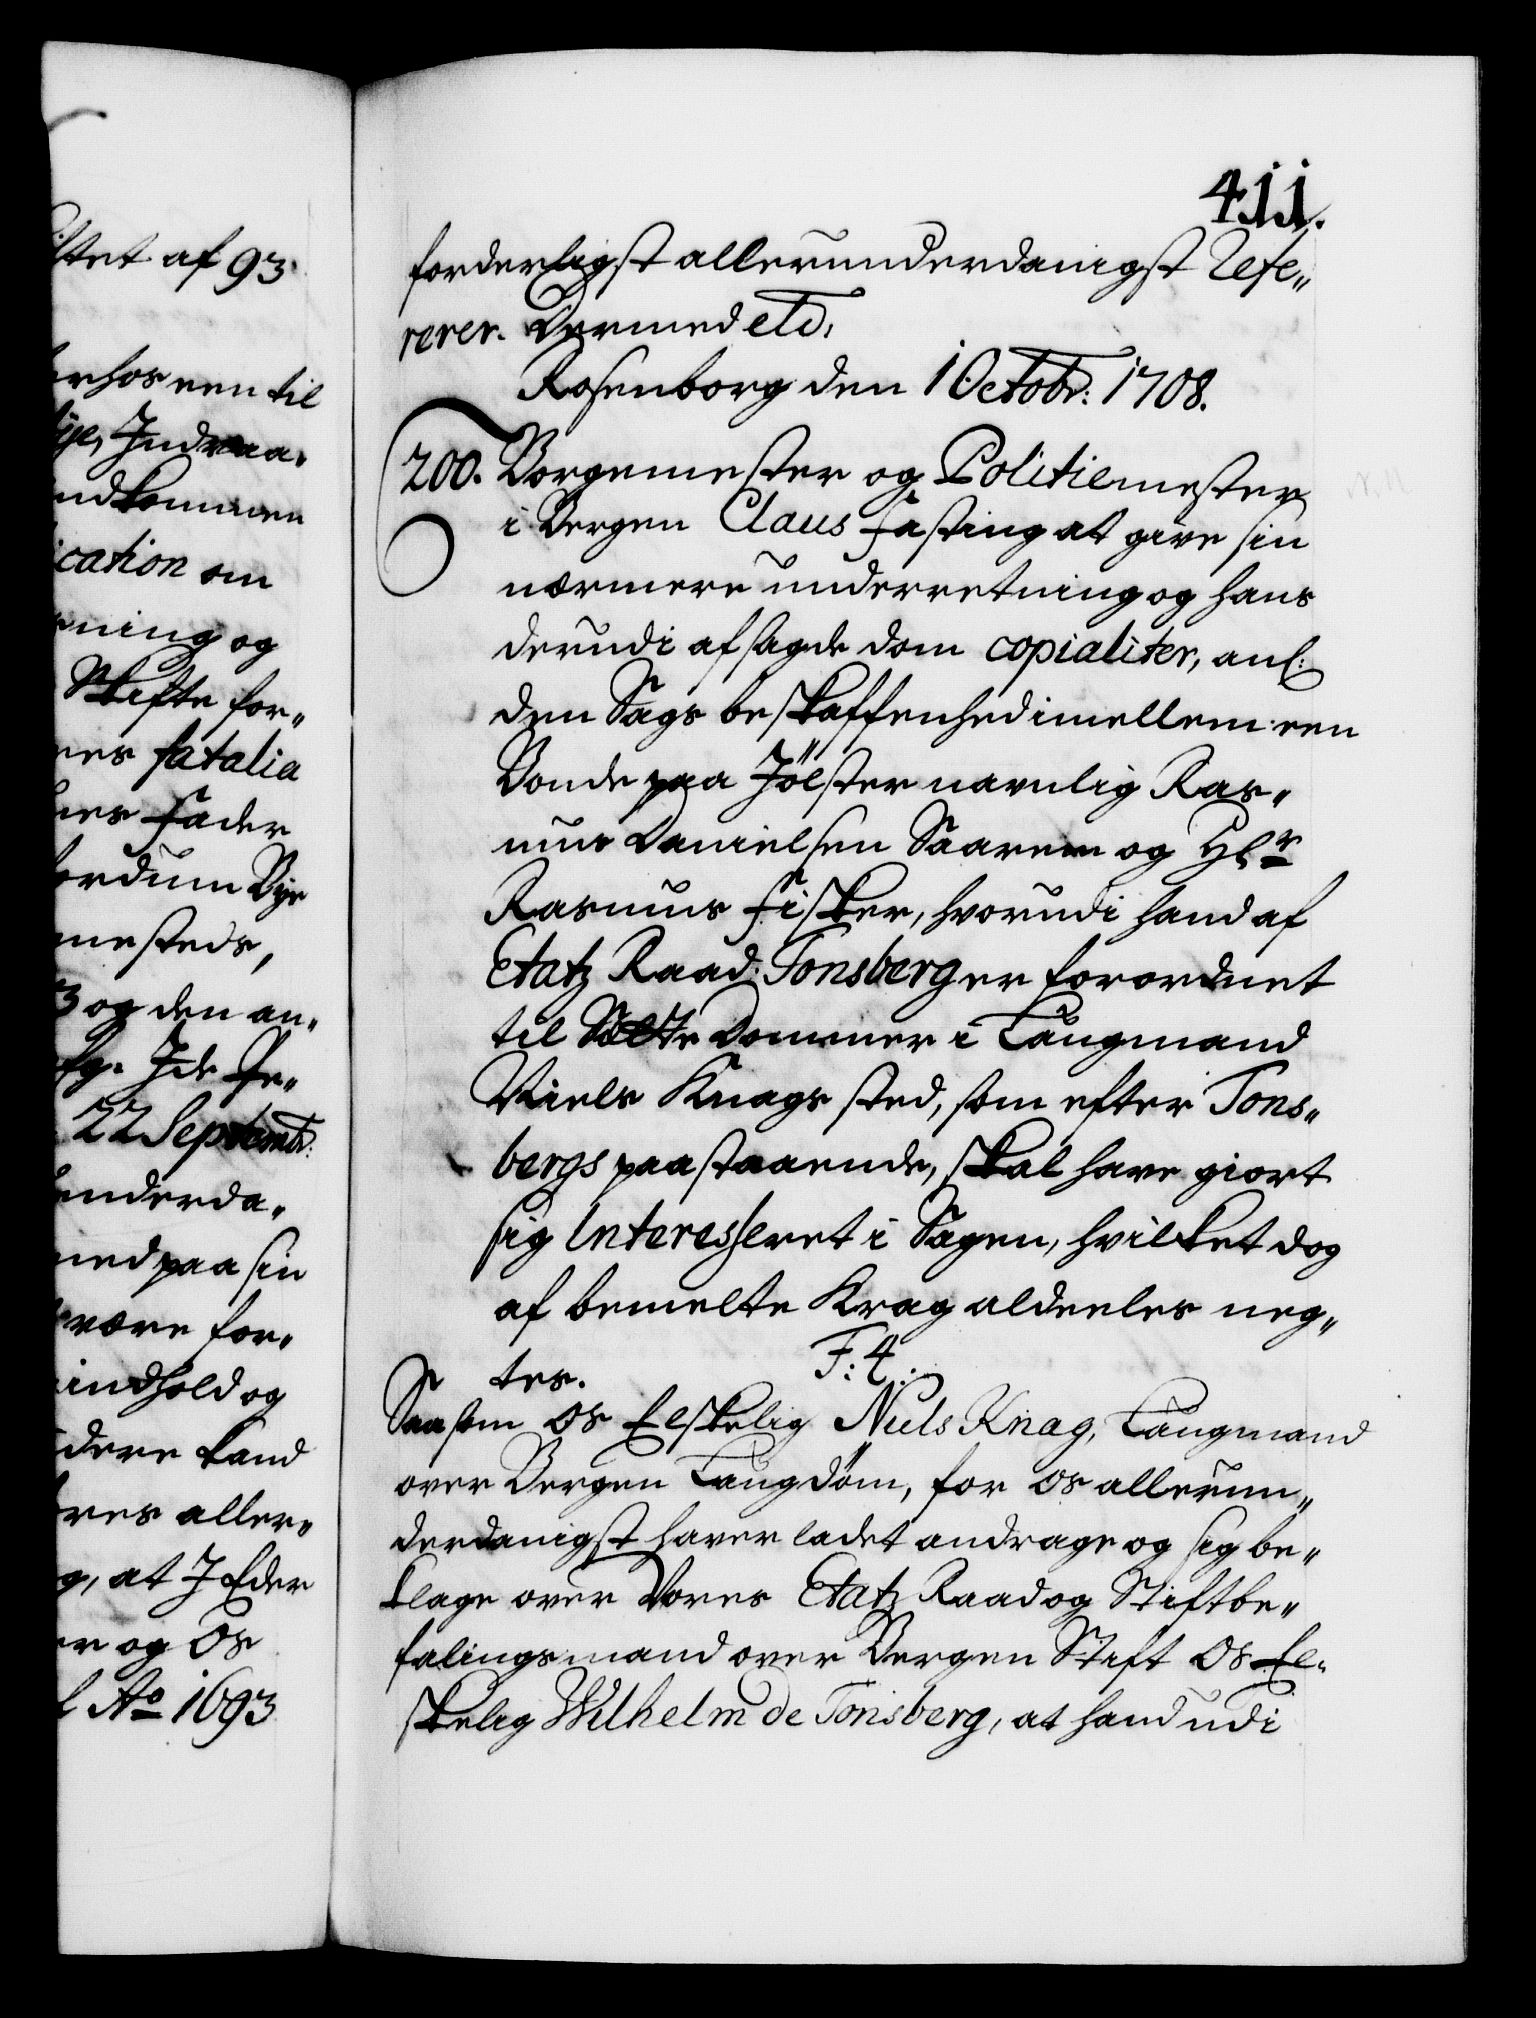 ittet af 93
erhos een til
lije, Indraa„
indkommen
ication om
ning og
Skifte for„
nes fatalia
nes Fader
fordum Bye
mesteds,
3 og den an„
Ide Pe„
22 Septembr:
underda„
med paa sin
være for„
indhold og
dere kand
ores aller„
g, at I Eder
er og Os
l Ao 1693
411.
forderligst allerunderdanigst Refe„
rerer. Dermed etc.
Rosenborg den 1 Octobr: 1708.
200. Borgemester og Politiemester
i Bergen Claus Fasting at give sin
nærmere underretning og hans
derudi afsagde dom copialiter, anl:
den Sags beskaffenhed imellem een
Bonde paa Jölster navnlig Ras„
mus Danielsen Saarem og Hr
Rasmus Fisker, hvorudi hand af
Etatz Raad Tonsberg er forordnet
til Sætte Dommer i Laugmand
Niels Knags sted, som efter Tons„
bergs paastaaende, skal have giort
sig Interesseret i Sagen, hvilket dog
af bemelte Knag aldeeles neg„
tes. F: 4.
Saasom Os Elskelig Niels Knag, Laugmand
over Bergen Laugdöm, for Os allerun„
derdanigst haver ladet andrage og sig be„
klage over Vores Etatz Raad og Stiftbe„
falingsmand over Bergen Stift Os El„
skelig Wilhelm de Tonsberg, at hand udi